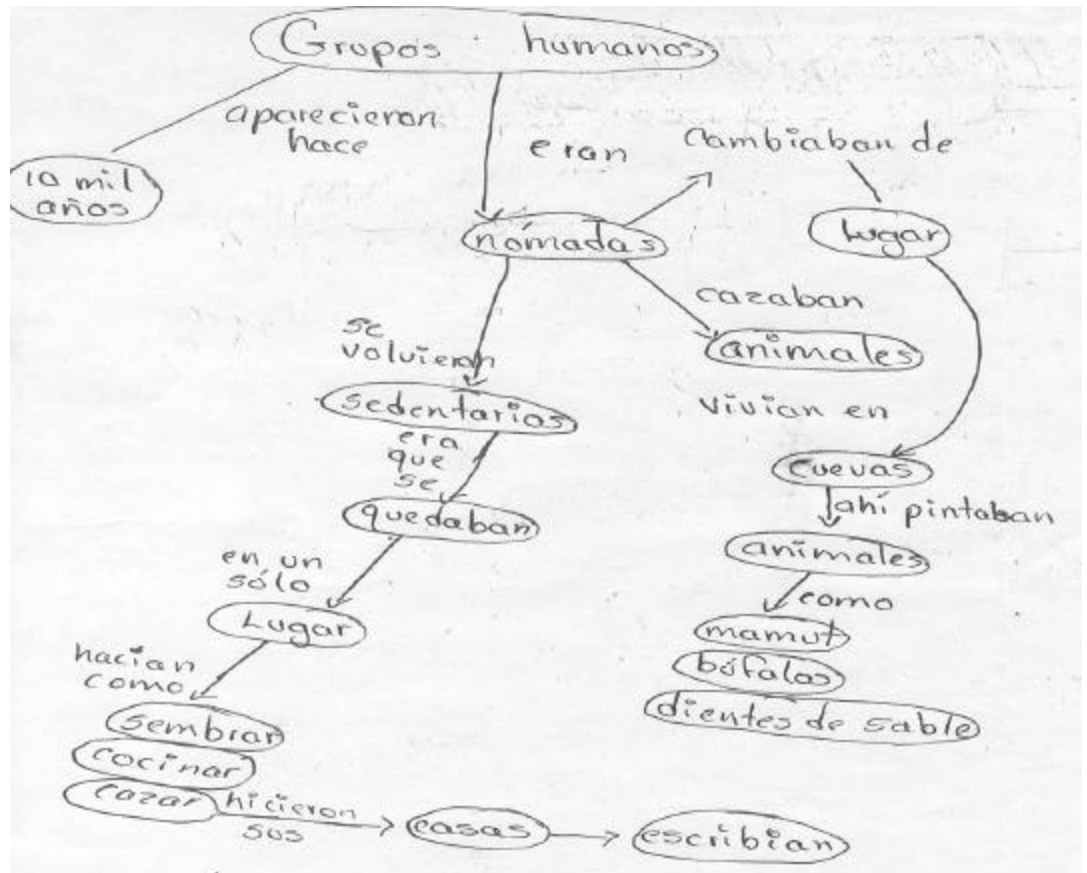 Grupos humanos
aparecieron
hace
10 mil
años
eran
nómadas
cambiaban de
lugar
cazaban
animales
vivian en
cuevas
ahí pintaban
animales
como
mamut
búfalas
dientes de sable
se
volvieron
sedentarios
era
que
se
quedaban
en un
sólo
Lugar
hacian
como
sembrar
cocinar
cazar
hicieron
sus
casas
escribian